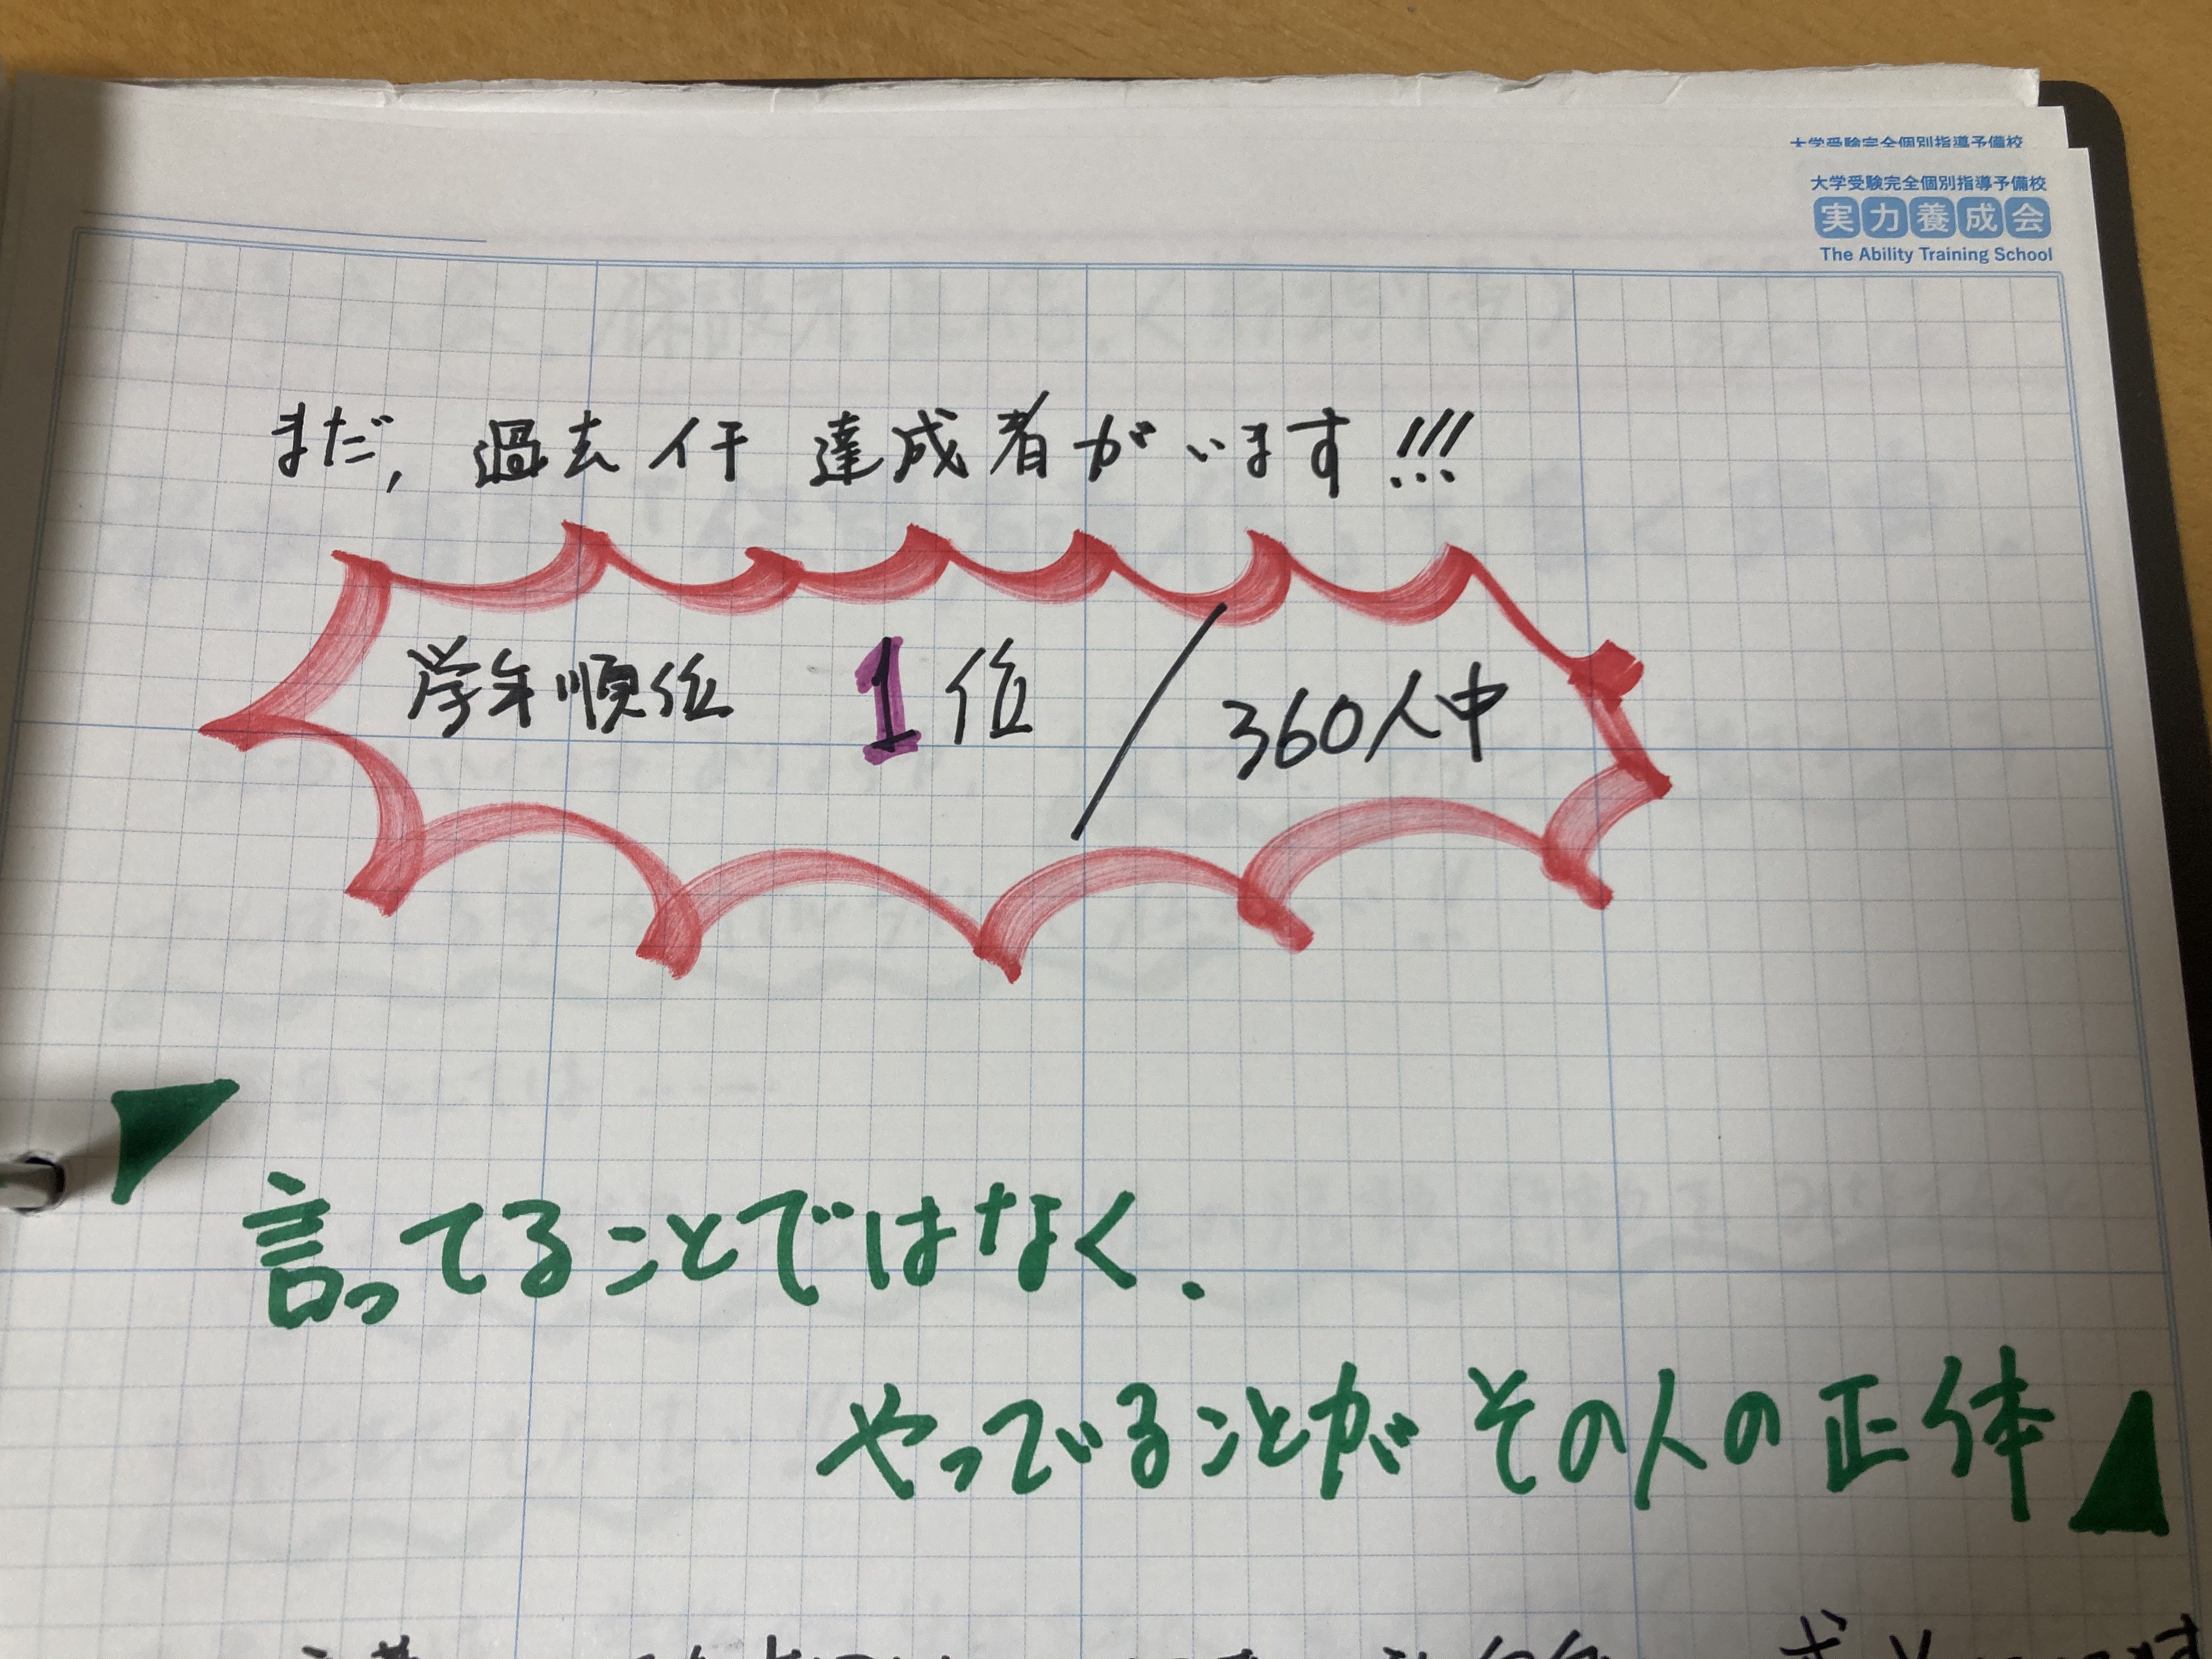 大学受験完全個別指導予備校
大学受験完全個別指導予備校
実力養成会
The Ability Training School
まだ, 過去イチ 達成者がいます!!!
学年順位 1位 / 360人中
言ってることではなく.
やっていることが その人の正体